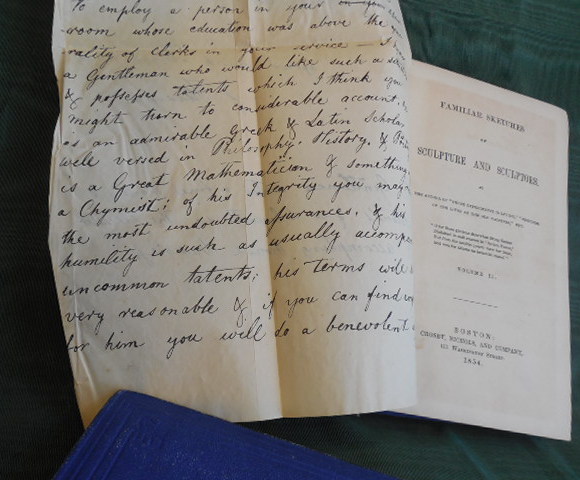 To employ a person in your
room whose education was above the
rality of clerks in your service – I
a Gentleman who would like such a
& possesses talents which I think you
might turn to considerable account.
is an admirable Greek & Latin Scholar
well versed in Philosophy. History. &
is a Great Mathematician & something
a Chymist; of his Integrity you may
the most undoubted assurances. & his
humility is such as usually accompa
uncommon talents; his terms will
very reasonable & if you can find
for him you will do a benevolent
FAMILIAR SKETCHES
OF
SCULPTURE AND SCULPTORS.
BY
VOLUME II.
BOSTON:
CROSBY, NICHOLS, AND COMPANY,
111 WASHINGTON STREET.
1854.